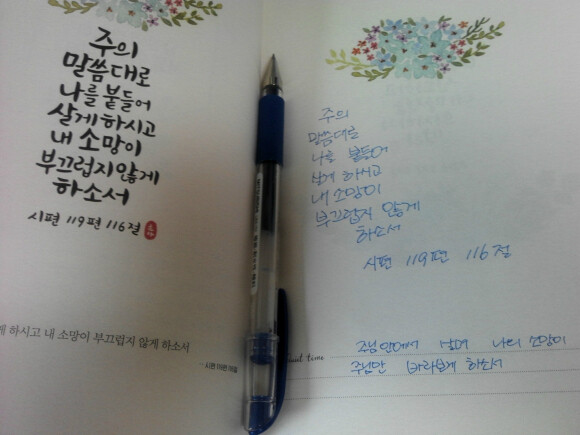 주의
말씀대로
나를 붙들어
살게 하시고
내 소망이
부끄럽지 않게
하소서
시편 119편 116절
하시고 내 소망이 부끄럽지 않게 하소서
주의
말씀대로
나를 붙들어
살게 하시고
내 소망이
부끄럽지 않게
하소서
시편 119편 116절
time
주님 안에서 살며 나의 소망이
주님만 바라보게 하소서